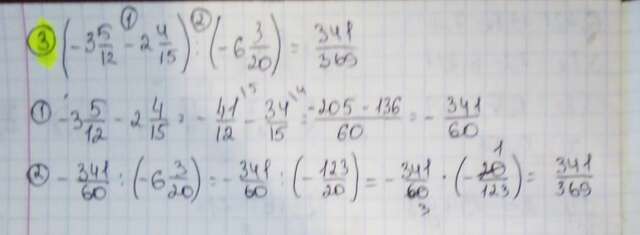 ③ (-3 5/12 - 2 4/15) : (-6 3/20) = 341/369
① -3 5/12 - 2 4/15 = -41/12 - 34/15 = (-205 - 136)/60 = -341/60
② -341/60 : (-6 3/20) = -341/60 : (-123/20) = -341/60 · (-20/123) = 341/369